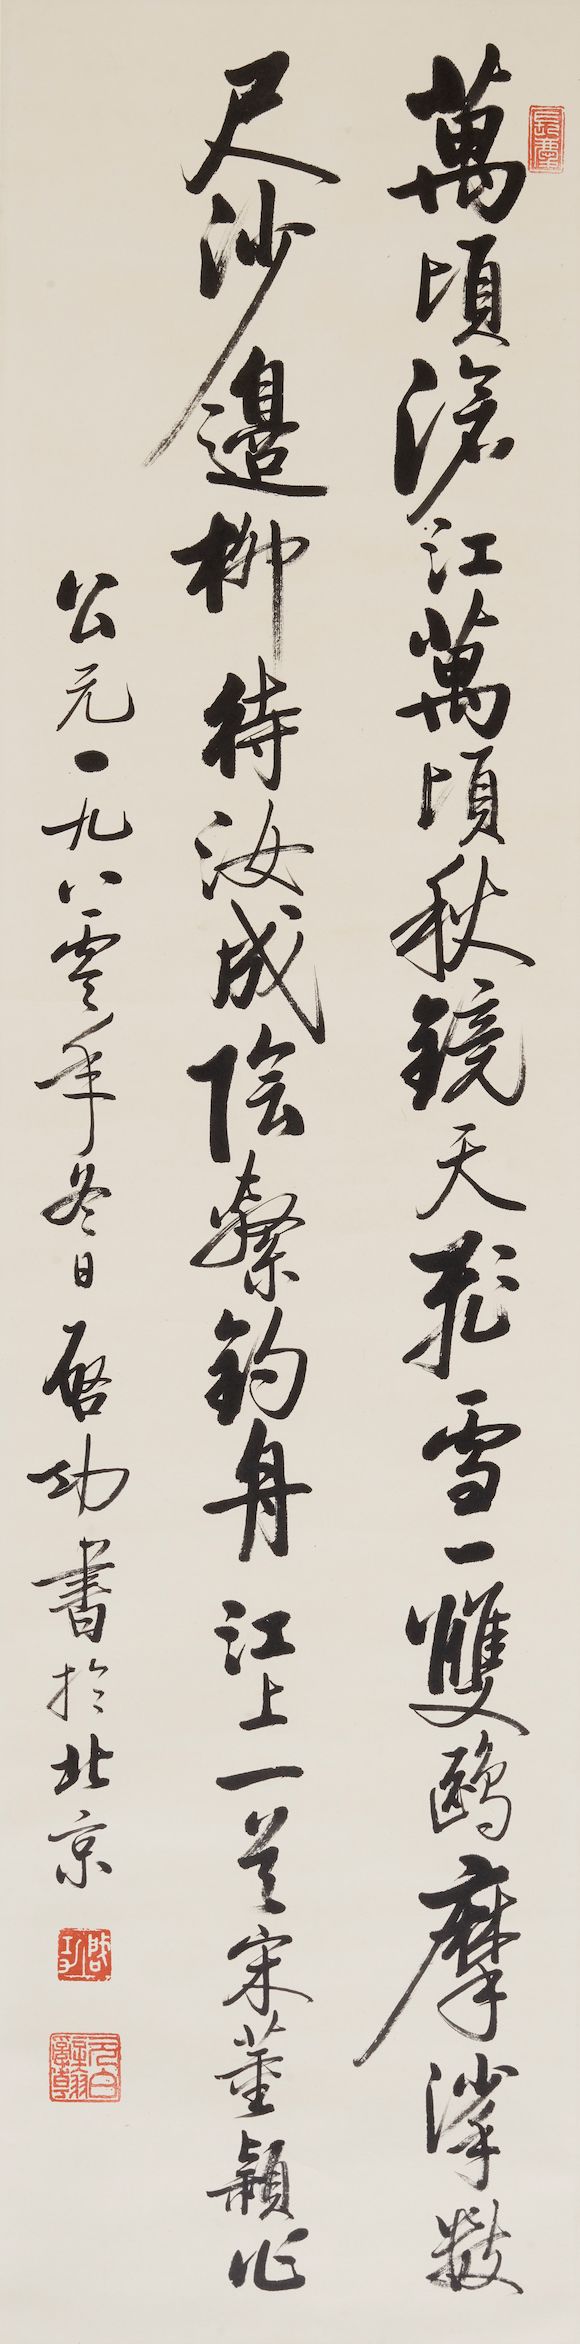 萬頃滄江萬頃秋鏡天飛雪一雙鷗摩挲數
尺沙邊柳待汝成陰繫釣舟江上一首宋董穎作
公元一九八零年冬日啓功書於北京
啓功